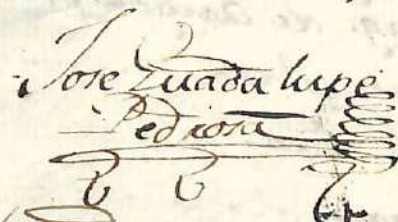 Jose Guadalupe
Pedrosa